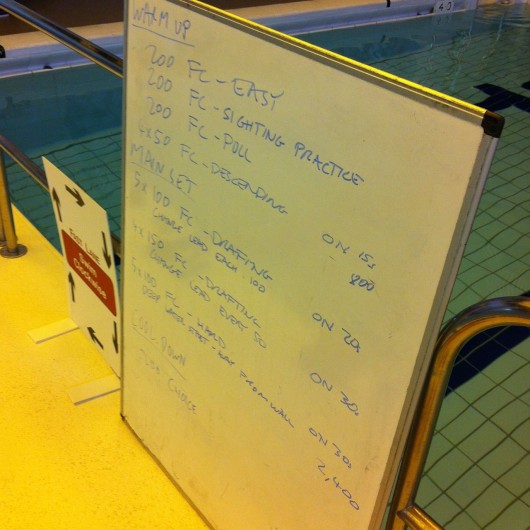 WARM UP
200 FC - EASY
200 FC - SIGHTING PRACTICE
200 FC - PULL
4x50 FC - DESCENDING ON 15s
800
MAIN SET
5x100 FC - DRAFTING ON 20s
CHANGE LEAD EACH 100
4x150 FC - DRAFTING ON 30s
CHANGE LEAD EVERY 50
5x100 FC - HARD ON 30s
DEEP WATER START - AWAY FROM WALL
2,400
COOL DOWN
200 CHOICE
Fast Lane
Swim
Clockwise